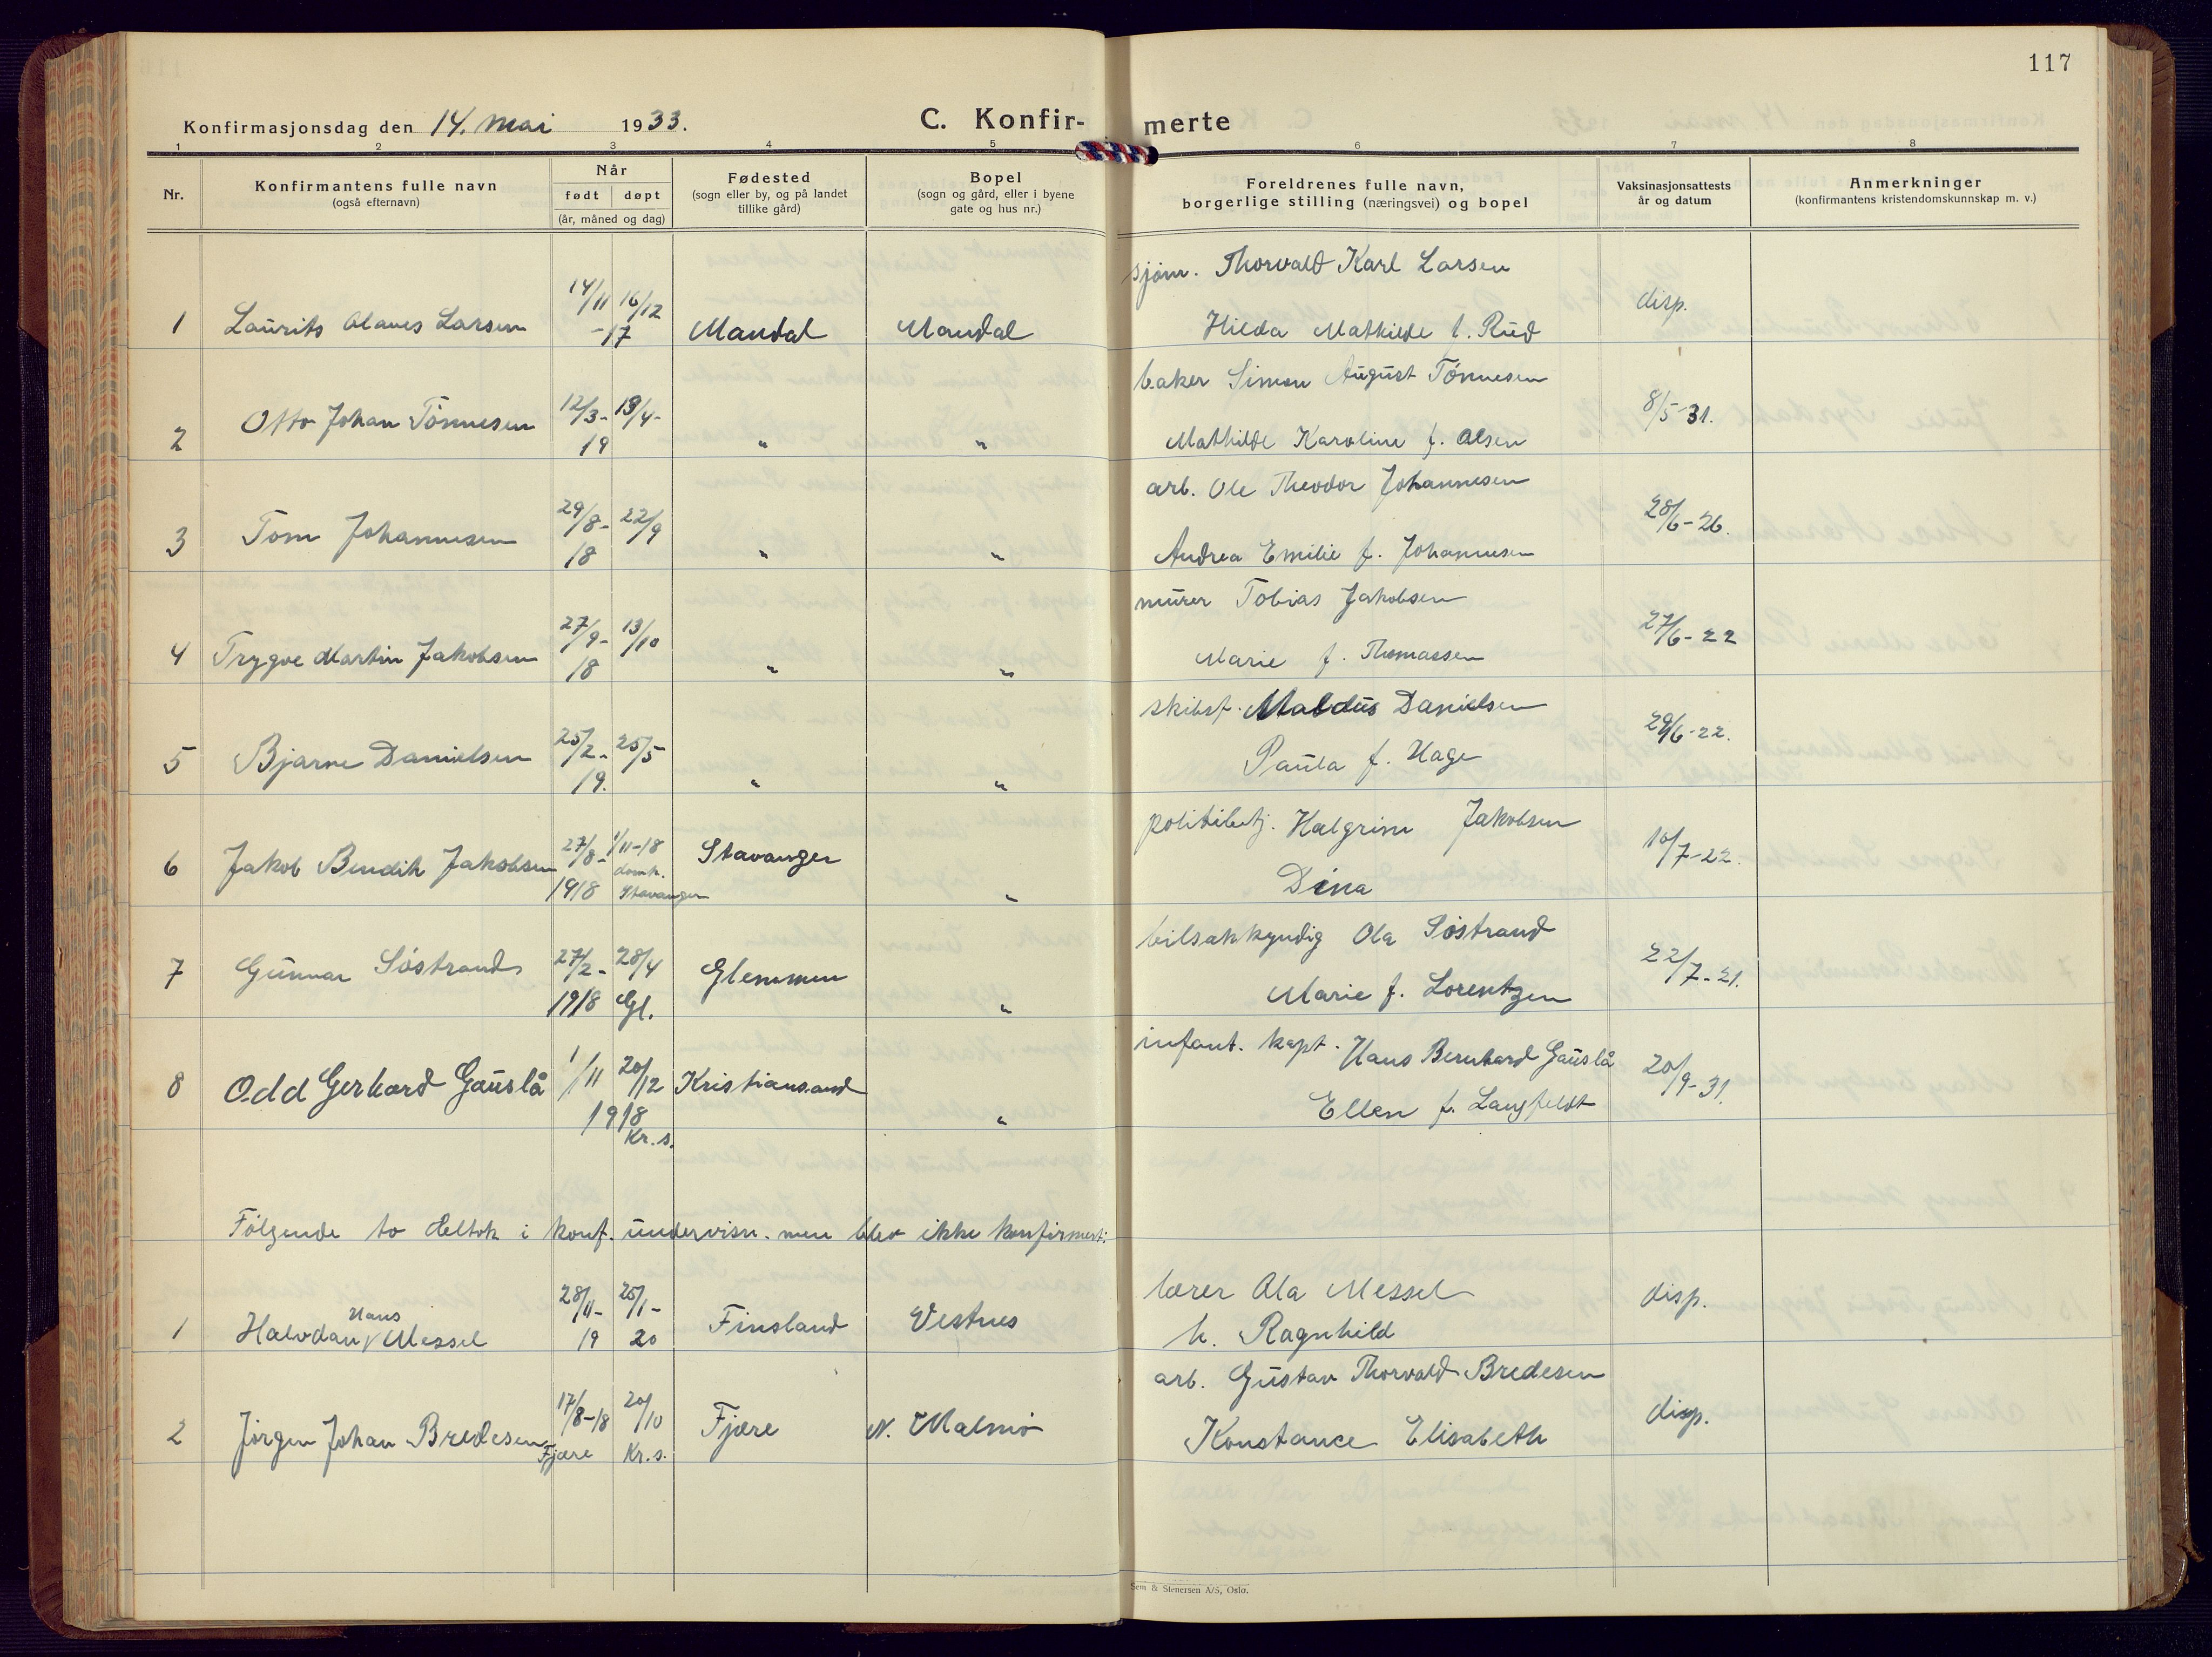 117
Konfirmasjonsdag den 14. mai 1933.
C. Konfir- merte
1 2 3 4 5 6 7 8
Nr.
Konfirmantens fulle navn
(også efternavn)
Når
født døpt
(år, måned og dag)
Fødested
(sogn eller by, og på landet
tillike gård)
Bopel
(sogn og gård, eller i byene
gate og hus nr.)
Foreldrenes fulle navn,
borgerlige stilling (næringsvei) og bopel
Vaksinasjonsattests
år og datum
Anmerkninger
(konfirmantens kristendomskunnskap m. v.)
sjøm. Thorvald Karl Larsen
14/11 16/12 disp.
1 Laurits Olaves Larsen -17 Mandal Mandal Hilda Mathilde f. Rud
baker Simon August Tönnesen
12/3- 13/4- 8/5-31.
2 Otto Johan Tönnesen 19 " " Mathilde Karoline f. Olsen
arb. Ole Theodor Johannesen
29/8- 22/9 28/6-26.
3 Tom Johannesen 18 " " Andrea Emilie f. Johannesen
murer Tobias Jakobsen
27/9- 13/10 27/6-22
4 Trygve Martin Jakobsen 18 " " Marie f. Thomassen
skibsf. Maldus Danielsen
25/2- 25/5 29/6-22.
5 Bjarne Danielsen 19. " " Paula f. Hage
politibetj. Halgrim Jakobsen
27/8- 1/11-18 Stavanger 10/7-22.
6 Jakob Bendik Jakobsen 1918 domk. Stavanger " Dina
bilsakkyndig Ola Sóstrand
27/2- 28/4 Glemmen 22/7-21.
7 Gunnar Sóstrand 1918 Gl. " Marie f. Lorentzen
infant. kapt. Hans Bernhard Gauslå
1/11 20/12 Kristiansand 20/9-31.
8 Odd Gerhard Gauslå 1918 Kr. s. " Ellen f. Langfeldt
Følgende to deltok i konf. undervisn. men blev ikke konfirmert:
28/11- 25/1- lærer Ola Messel disp.
1 Halvdan Hans Messel 19 20 Finsland Vestnes h. Ragnhild
arb. Gustav Thorvald Bredesen
17/8-18 20/10 disp.
2 Jörgen Johan Bredesen Fjære Kr. s. Fjære N. Malmö Konstance Elisabeth
Sem & Stenersen A/S, Oslo.